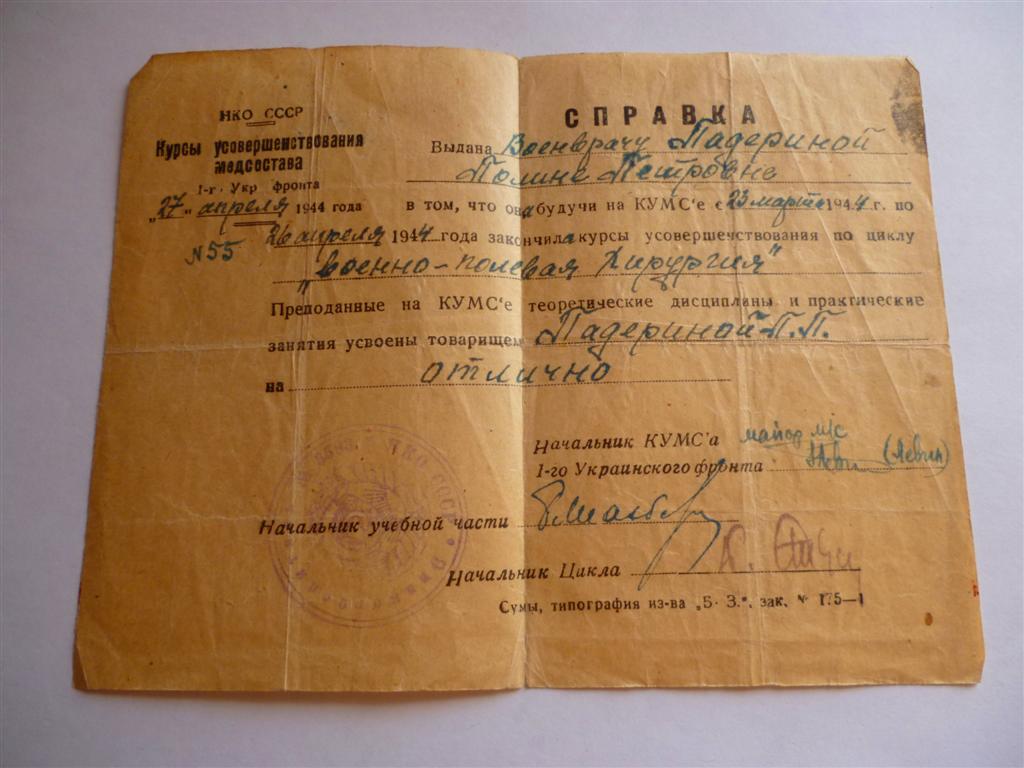 НКО СССР
Курсы усовершенствования
медсостава
1-г. Укр фронта
"27" апреля 1944 года
N 55
СПРАВКА
Выдана Военврачу Падериной
Полине Петровне
в том, что она будучи на КУМС'е с 23 марта 1944 г. по
26 апреля 1944 года закончила курсы усовершенствования по циклу
"военно-полевая хирургия"
Преподанные на КУМС'е теоретические дисциплины и практические
занятия усвоены товарищем Падериной П. П.
на отлично
Начальник КУМС'а майор м/с
1-го Украинского фронта (Левин)
Начальник учебной части
Начальник Цикла
Сумы, типография из-ва "Б. З.", зак. № 175—1
НКО СССР